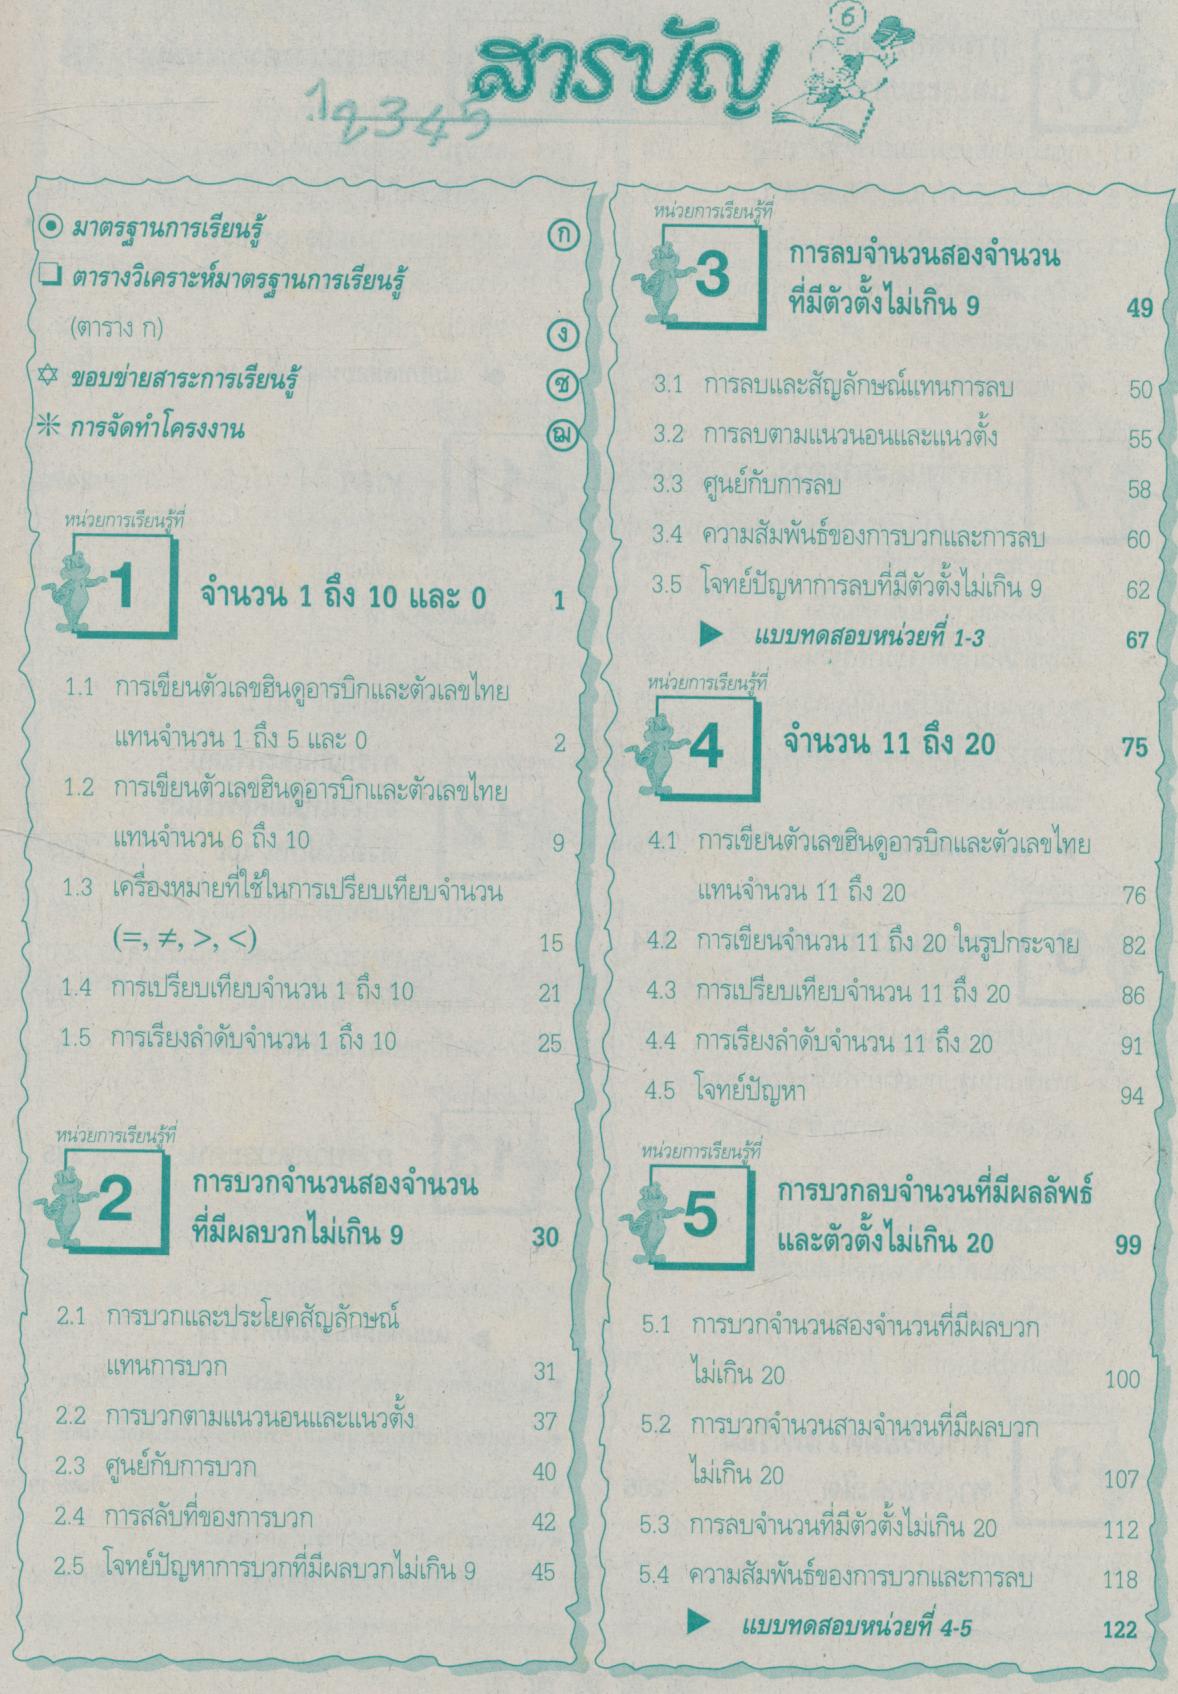 สารบัญ
6
1 2 3 4 5
มาตรฐานการเรียนรู้ ก
ตารางวิเคราะห์มาตรฐานการเรียนรู้
(ตาราง ก) ง
ขอบข่ายสาระการเรียนรู้ ช
การจัดทำโครงงาน ฌ
หน่วยการเรียนรู้ที่
1 จำนวน 1 ถึง 10 และ 0 1
1.1 การเขียนตัวเลขฮินดูอารบิกและตัวเลขไทย
แทนจำนวน 1 ถึง 5 และ 0 2
1.2 การเขียนตัวเลขฮินดูอารบิกและตัวเลขไทย
แทนจำนวน 6 ถึง 10 9
1.3 เครื่องหมายที่ใช้ในการเปรียบเทียบจำนวน
(=, ≠, >, <) 15
1.4 การเปรียบเทียบจำนวน 1 ถึง 10 21
1.5 การเรียงลำดับจำนวน 1 ถึง 10 25
หน่วยการเรียนรู้ที่
2 การบวกจำนวนสองจำนวน
ที่มีผลบวกไม่เกิน 9 30
2.1 การบวกและประโยคสัญลักษณ์
แทนการบวก 31
2.2 การบวกตามแนวนอนและแนวตั้ง 37
2.3 ศูนย์กับการบวก 40
2.4 การสลับที่ของการบวก 42
2.5 โจทย์ปัญหาการบวกที่มีผลบวกไม่เกิน 9 45
หน่วยการเรียนรู้ที่
3 การลบจำนวนสองจำนวน
ที่มีตัวตั้งไม่เกิน 9 49
3.1 การลบและสัญลักษณ์แทนการลบ 50
3.2 การลบตามแนวนอนและแนวตั้ง 55
3.3 ศูนย์กับการลบ 58
3.4 ความสัมพันธ์ของการบวกและการลบ 60
3.5 โจทย์ปัญหาการลบที่มีตัวตั้งไม่เกิน 9 62
แบบทดสอบหน่วยที่ 1-3 67
หน่วยการเรียนรู้ที่
4 จำนวน 11 ถึง 20 75
4.1 การเขียนตัวเลขฮินดูอารบิกและตัวเลขไทย
แทนจำนวน 11 ถึง 20 76
4.2 การเขียนจำนวน 11 ถึง 20 ในรูปกระจาย 82
4.3 การเปรียบเทียบจำนวน 11 ถึง 20 86
4.4 การเรียงลำดับจำนวน 11 ถึง 20 91
4.5 โจทย์ปัญหา 94
หน่วยการเรียนรู้ที่
5 การบวกลบจำนวนที่มีผลลัพธ์
และตัวตั้งไม่เกิน 20 99
5.1 การบวกจำนวนสองจำนวนที่มีผลบวก
ไม่เกิน 20 100
5.2 การบวกจำนวนสามจำนวนที่มีผลบวก
ไม่เกิน 20 107
5.3 การลบจำนวนที่มีตัวตั้งไม่เกิน 20 112
5.4 ความสัมพันธ์ของการบวกและการลบ 118
แบบทดสอบหน่วยที่ 4-5 122